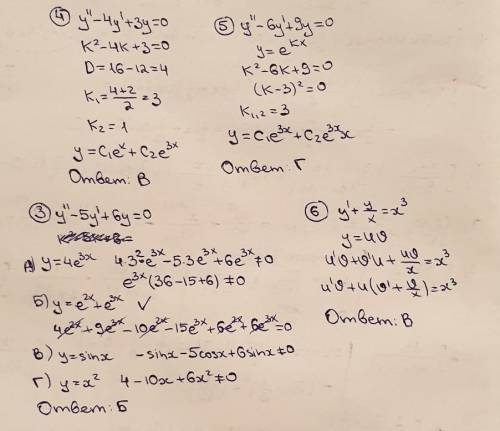 ④ y''-4y'+3y=0
k²-4k+3=0
D=16-12=4
k₁=(4+2)/2=3
k₂=1
y=C₁eˣ+C₂e³ˣ
Ответ: В
⑤ y''-6y'+9y=0
y=eᵏˣ
k²-6k+9=0
(k-3)²=0
k₁,₂=3
y=C₁e³ˣ+C₂e³ˣx
Ответ: Г
③ y''-5y'+6y=0
А) y=4e³ˣ 4·3²·e³ˣ-5·3e³ˣ+6e³ˣ≠0
e³ˣ(36-15+6)≠0
Б) y=e²ˣ+e³ˣ ✓
4e²ˣ+9e³ˣ-10e²ˣ-15e³ˣ+6e²ˣ+6e³ˣ=0
В) y=sinx -sinx-5cosx+6sinx≠0
Г) y=x² 4-10x+6x²≠0
Ответ: Б
⑥ y'+y/x=x³
y=uϑ
u'ϑ+ϑ'u+uϑ/x=x³
u'ϑ+u(ϑ'+ϑ/x)=x³
Ответ: В